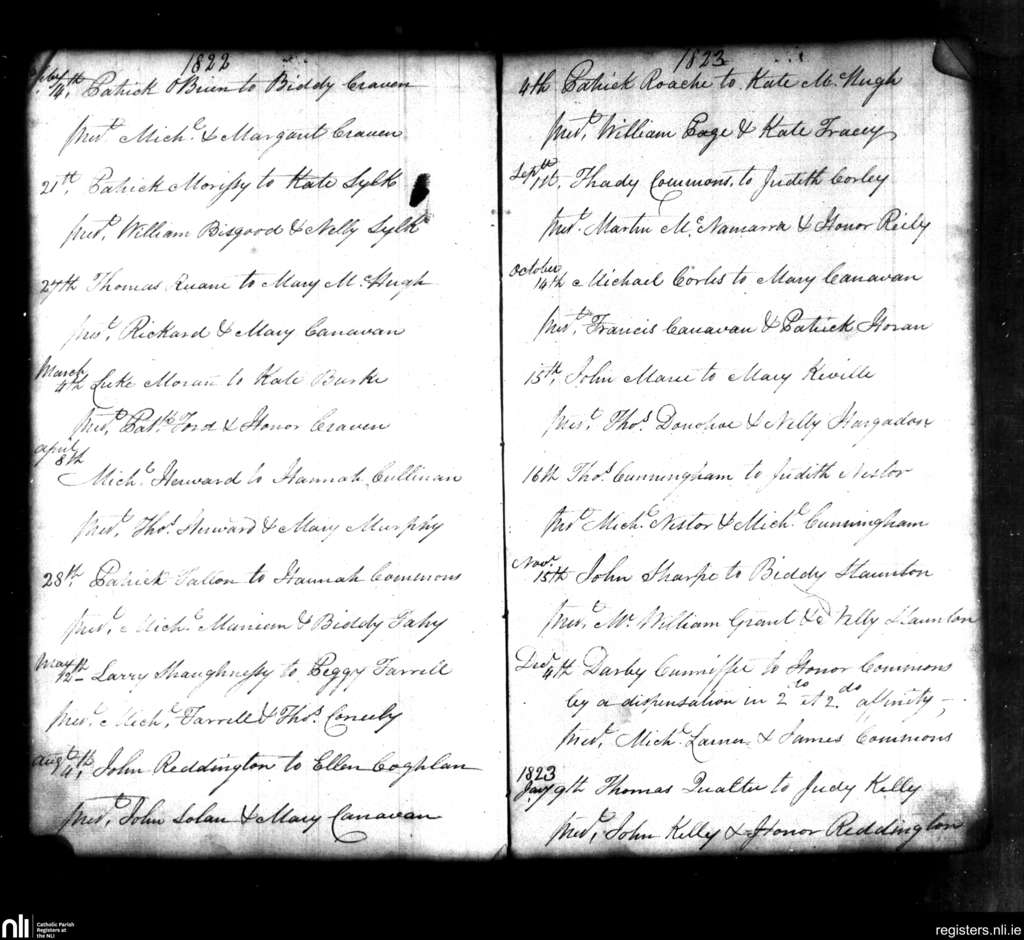 1822
Feby 14th, Patrick OBrien to Biddy Craven
prest. Michl. & Margaret Craven
21th, Patrick Morissy to Kate Sylk
prest, William Bisgood & Nelly Sylk
27th Thomas Ruane to Mary McHugh
prest. Rickard & Mary Canavan
March 4th Luke Moran to Kate Burke
prest, Patk. Ford & Honor Craven
April 8th
Michl. Heward to Hannah Cullinan
prest, Thos. Heward & Mary Murphy
28th. Patrick Fallon to Hannah Commons
prest, Michl. & Biddy Fahy
May 12th Larry Shaughnessy to Peggy Farrell
prest. Michl. Farrell & Thos. Coneeby
Augt 4th, John Reddington to Ellen Coghlan
prest, John Solan & Mary Canavan
1823
4th Patrick Roache to Kate McHugh
prest, William Page & Kate Tracey
Septr 11th, Thady Commons, to Judith Corley
prest. Martin McNamarra & Honor Reily
October 14th Michael Corles to Mary Canavan
prest, Francis Canavan & Patrick Horan
15th, John Maree to Mary Keville
prest, Thos. Donohoe & Nelly Hargadon
16th Thos. Cunningham to Judith Nestor
prest Michl. Nestor & Michl. Cunningham
Novr. 15th John Sharpe to Biddy Staunton
prest, Mr. William Grant & Nelly Staunton
Decr 4th Darby Cunniffe to Honor Commons
by a dispensation in 2do et 2do affinity,
prest, Michl. & James Commons
1823
Jany 9th Thomas Qualter to Judy Kelly
prest, John Kelly & Honor Reddington
nli Catholic Parish
Registers at
the NLI
registers.nli.ie